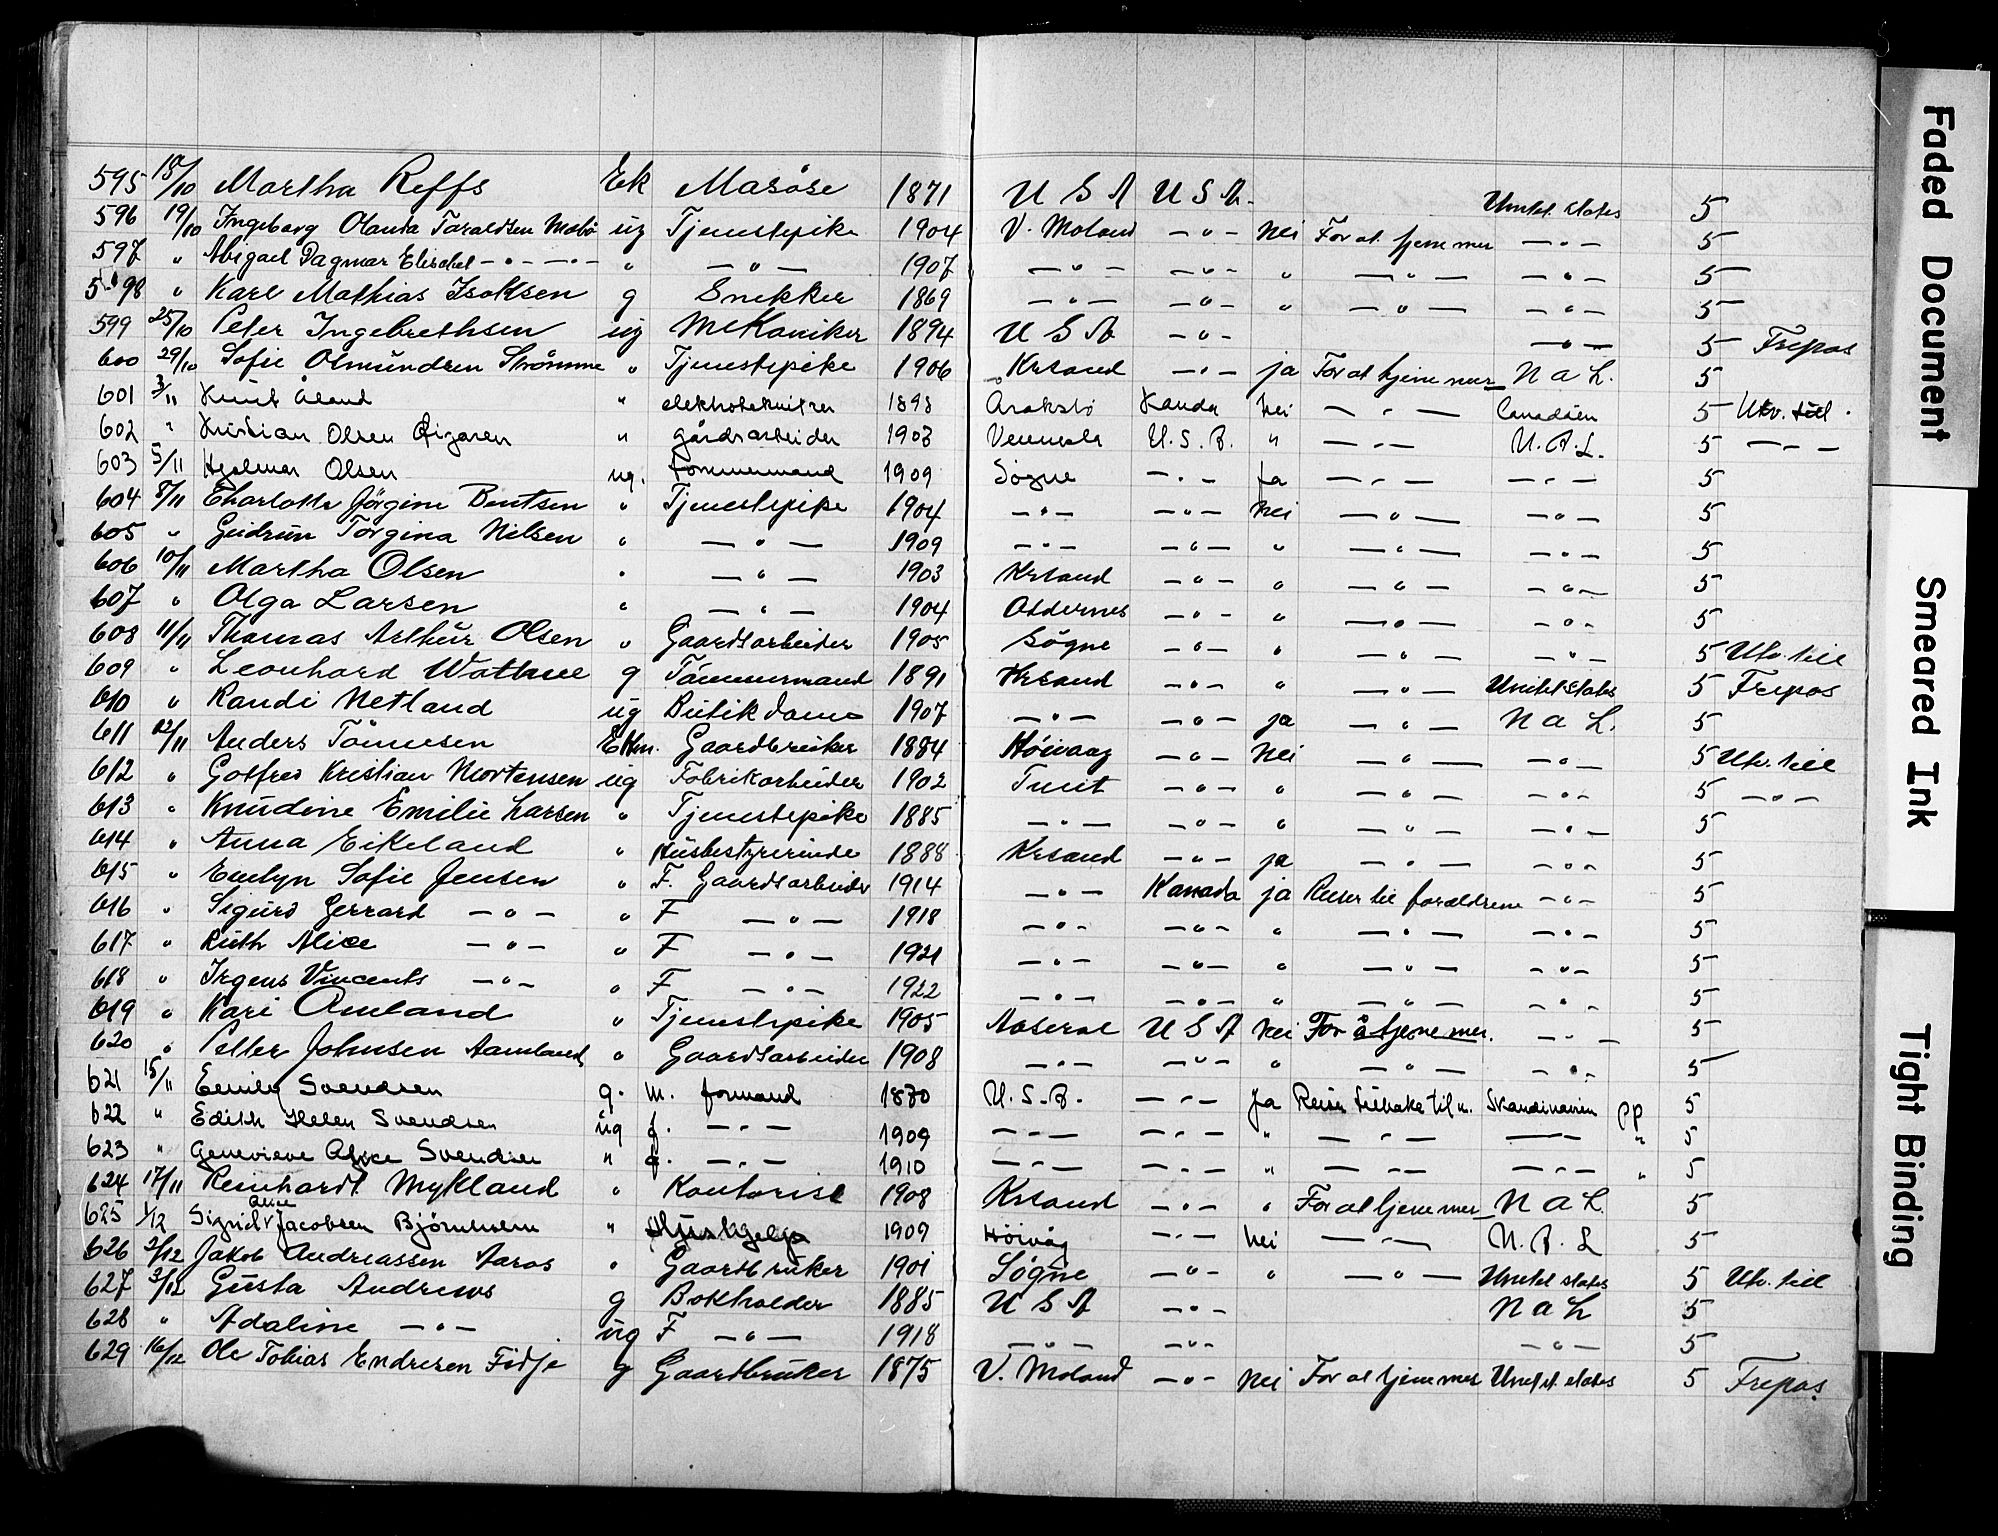 595 18/10 Martha Reffs Ek Masøse 1871 U S A U S A. Unitet states 5
596 19/10 Ingeborg Olanda Taraldsen Mæbø ug Tjenestepike 1904 V. Moland — " — Nei For at tjene mer — " — 5
597 " Abigael Dagmar Elischel — " — — " — " — " — 1907 — " — — " — " — " — — " — 5
598 " Karl Mathias Isaksen g Snekker 1869 — " — — " — " — " — — " — 5
599 25/10 Peter Ingebrethsen ug Mekaniker 1894 U S A — " — — " — 5 Frepas
600 29/10 Sofie Osmundsen Strømme " Tjenestepike 1906 Krsand — " — ja For at tjene mer N a L. 5
601 3/11 Knut Åland " elektrotekniker 1898 Kanda Nei — " — Canadien 5 Utv. till.
602 " Kristian Olsen " gårdsarbeider 1903 Vennesla U. S. A. " — " — N. A. L. 5 — " —
603 5/11 Hjalmar Olsen ug. Tømmermand 1909 Søgne — " — Ja — " — — " — 5
604 8/11 Charlotte Jørgine Bentsen " Tjenestepike 1904 — " — — " — Nei — " — — " — 5
605 " Gudrun Torgina Nilsen " — " — 1909 — " — — " — " — " — — " — 5
606 10/11 Martha Olsen " — " — 1903 Krsand — " — " — " — — " — 5
607 " Olga Larsen " — " — 1904 Oddernes — " — " — " — — " — 5
608 11/11 Thomas Arthur Olsen " Gaardsarbeider 1905 Søgne — " — " — " — — " — 5 Utv. till
609 " Leonhard Wathne g Tømmermand 1891 Krsand — " — " — " — Unitet states 5 Frepas
610 " Randi Netland ug Butikdame 1907 — " — — " — ja — " — N a L. 5
611 12/11 Anders Tønnesen Ekm. Gaardbruker 1884 Høivaag — " — Nei — " — — " — 5 Utv. till
612 " Gotfred Kristian Mortensen ug Fabrikarbeider 1902 Tveit — " — " — " — — " — 5 — " —
613 " Knudine Emilie Larsen " Tjenestepike 1885 — " — — " — " — " — — " — 5
614 " Anna Eikeland " Husbestyrerinde 1888 Krsand — " — ja — " — — " — 5
615 " Evelyn Sofie Jensen " F. Gaardsarbeider 1914 — " — Kanada ja Reiser til forældrene — " — 5
616 " Sigurd Gerrard — " — " F — " — 1918 — " — — " — " — " — — " — 5
617 " Ruth Alice — " — " F — " — 1921 — " — — " — " — " — — " — 5
618 " Irgens Vincents — " — " F — " — 1922 — " — — " — " — " — — " — 5
619 " Kari Omland " Tjenestepike 1905 Aaseral U S A Nei For å tjene mer. — " — 5
620 " Petter Johnsen Aamland " Gaardsarbeider 1908 — " — — " — " — " — — " — 5
621 15/11 Emily Svendsen g. m. formand 1880 U. S. A. — " — Ja Reise tilbake til m. Skandinavien pp 5
622 " Edith Helen Svendsen ug f. — " — 1909 — " — — " — " — " — — — " 5
623 " Genevieve Alyce Svendsen " f. — " — 1910 — " — — " — " — " — — " — " 5
624 17/11 Reinhardt Mykland " Kontorist 1908 Krsand — " — " For at tjene mer N a L. 5
625 1/12 Sigrid Jacobsen Bjørnholm " Hushjelp 1909 Høivåg — " — Nei — " — N. A. L 5
626 2/12 Jakob Andreassen Aaros " Gaardbruker 1901 Søgne — " — " — " — Unitet states 5 Utv. till
627 3/12 Gusta Andrews g Bokholder 1885 U S A — " — N a L 5
628 " Adaline — " — ug F — " — 1918 — " — — " — — " — 5
629 16/12 Ole Tobias Endresen Fidje g Gaardbruker 1875 V. Moland — " — Nei For at tjene mer Unitet states 5 Frepas.
Faded Document
Smeared Ink
Tight Binding